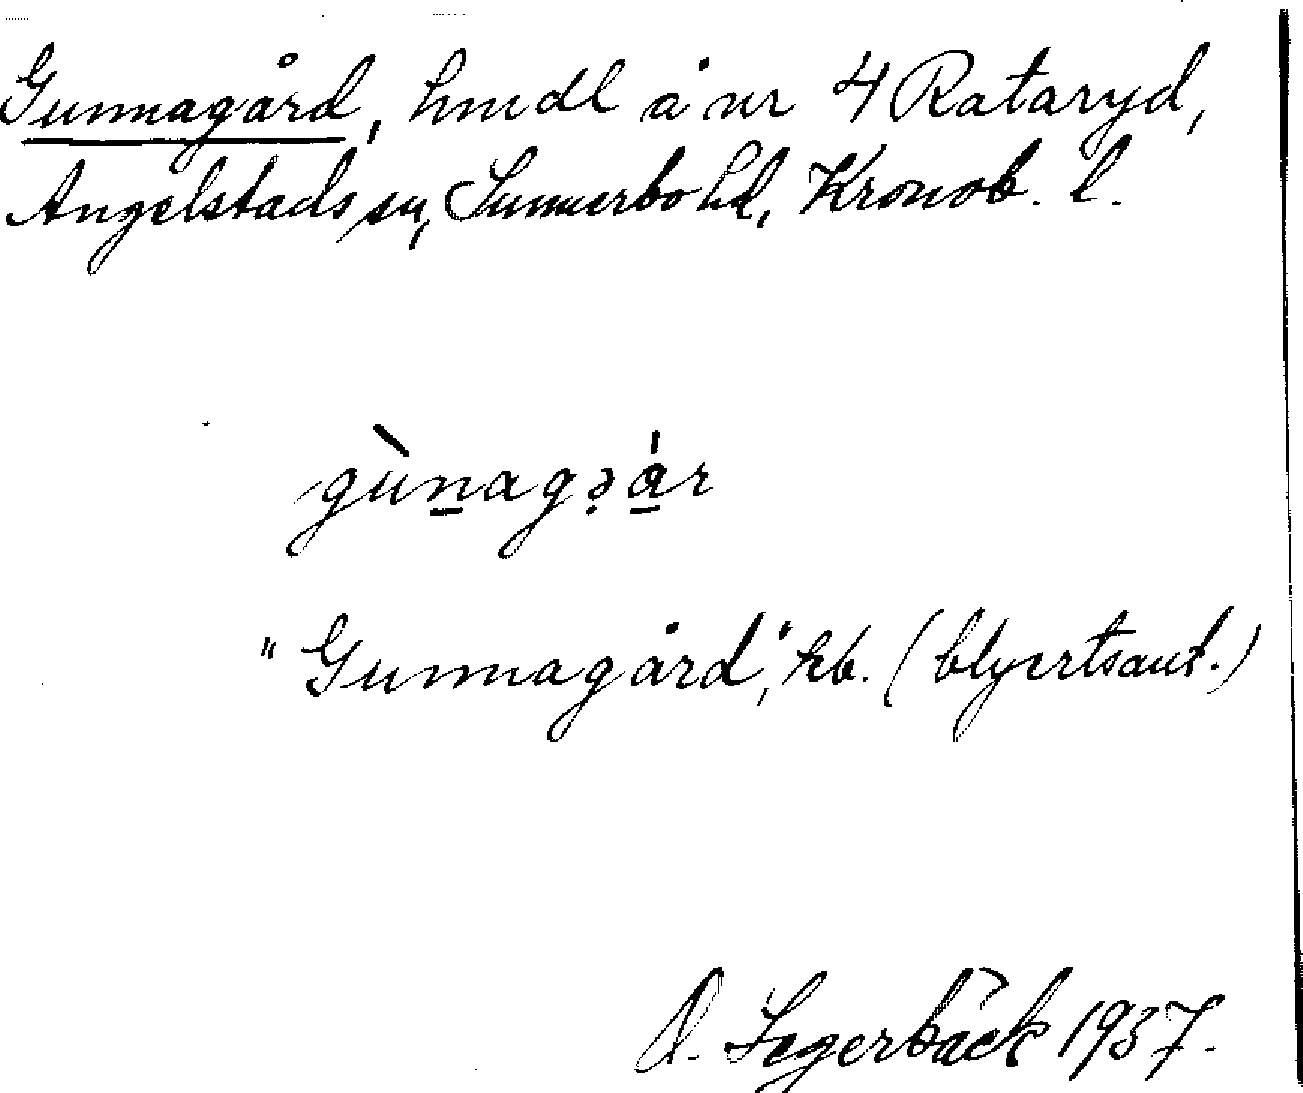 Gunnagård, hmdl å nr 4 Rataryd,
Angelstads sn, Sunnerbo hd, Kronob. l.
gùnagə̣ár
"Gunnagård", kb. (blyertsant.)
O. Segerbäck 1937.